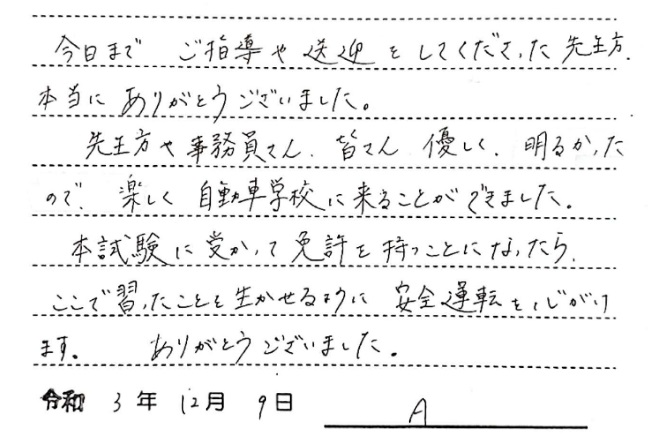 今日まで ご指導や送迎をしてくださった先生方、
本当にありがとうございました。
先生方や事務員さん、皆さん 優しく、明るかった
ので、楽しく 自動車学校に来ることができました。
本試験に受かって免許を持つことになったら、
ここで習ったことを生かせるように 安全運転を心がけ
ます。 ありがとうございました。
令和 3年 12月 9日 A